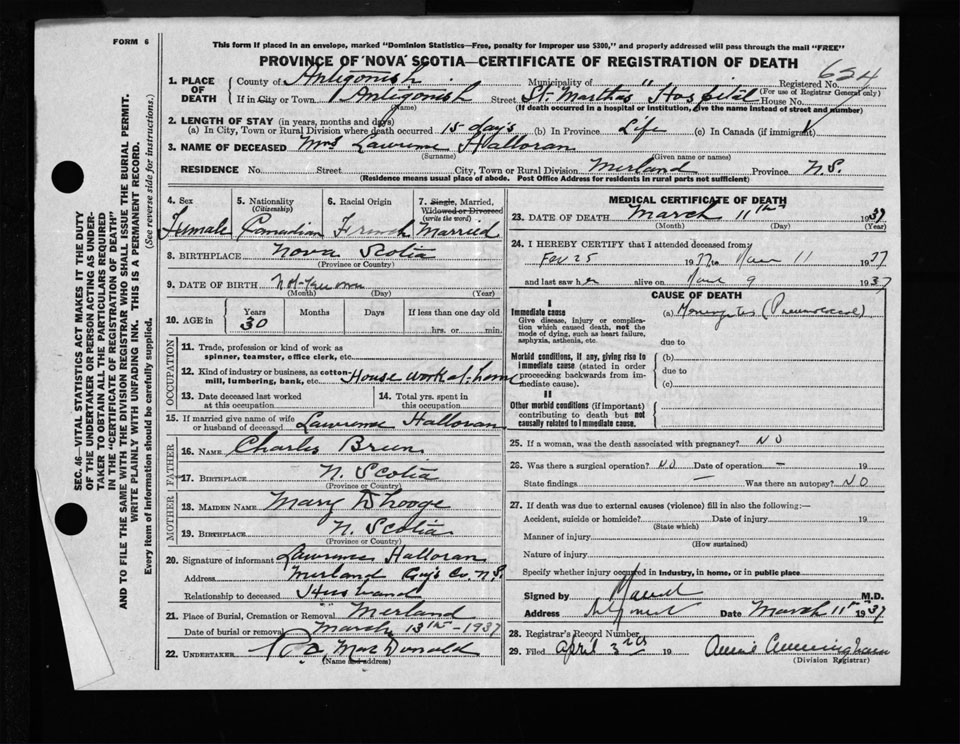 FORM 6
This form if placed in an envelope, marked "Dominion Statistics—Free, penalty for improper use $300," and properly addressed will pass through the mail "FREE"
PROVINCE OF NOVA SCOTIA—CERTIFICATE OF REGISTRATION OF DEATH
654
1. PLACE OF DEATH
County of Antigonish Municipality of " Registered No.
(For use of Registrar General only)
If in City or Town Antigonish Street St. Marthas Hospital House No.
(Name) (If death occurred in a hospital or institution, give the name instead of street and number)
2. LENGTH OF STAY (in years, months and days)
(a) In City, Town or Rural Division where death occurred 15-days (b) In Province Life (c) In Canada (if immigrant)
3. NAME OF DECEASED Mrs Lawrence Halloran
(Surname) (Given name or names)
RESIDENCE No. Street City, Town or Rural Division Merland Province N.S.
(Residence means usual place of abode. Post Office Address for residents in rural parts not sufficient)
4. Sex Female
5. Nationality (Citizenship) Canadian
6. Racial Origin French
7. Single, Married, Widowed or Divorced (write the word) Married
8. BIRTHPLACE Nova Scotia
(Province or Country)
9. DATE OF BIRTH Not-known
(Month) (Day) (Year)
10. AGE in Years Months Days If less than one day old
30 hrs. or min.
OCCUPATION
11. Trade, profession or kind of work as spinner, teamster, office clerk, etc.
12. Kind of industry or business, as cotton-mill, lumbering, bank, etc. House work at home
13. Date deceased last worked at this occupation
14. Total yrs. spent in this occupation
15. If married give name of wife or husband of deceased Lawrence Halloran
FATHER
16. NAME Charles
17. BIRTHPLACE N. Scotia
(Province or Country)
MOTHER
18. MAIDEN NAME Mary
19. BIRTHPLACE N. Scotia
(Province or Country)
20. Signature of informant Lawrence Halloran
Address Merland Guys Co N.S.
Relationship to deceased Husband
21. Place of Burial, Cremation or Removal Merland
Date of burial or removal March 13th-1937
22. UNDERTAKER MacDonald
(Name and address)
MEDICAL CERTIFICATE OF DEATH
23. DATE OF DEATH March 11th 1937
(Month) (Day) (Year)
24. I HEREBY CERTIFY that I attended deceased from
Feb 25 1937 to Mar 11 1937
and last saw her alive on Mar 9 1937
CAUSE OF DEATH
I
Immediate cause
Give disease, injury or complication which caused death, not the mode of dying, such as heart failure, asphyxia, asthenia, etc.
(a) Meningitis (Pneumococcal)
due to
Morbid conditions, if any, giving rise to immediate cause (stated in order proceeding backwards from immediate cause).
(b)
due to
(c)
II
Other morbid conditions (if important) contributing to death but not causally related to immediate cause.
25. If a woman, was the death associated with pregnancy? NO
26. Was there a surgical operation? NO Date of operation — 19
State findings — Was there an autopsy? NO
27. If death was due to external causes (violence) fill in also the following:—
Accident, suicide or homicide? Date of injury 19
(State which)
Manner of injury
(How sustained)
Nature of injury
Specify whether injury occurred in industry, in home, or in public place
Signed by M.D.
Address Date March 11th 1937
28. Registrar's Record Number
29. Filed April 3rd 19 Annie Cunningham
(Division Registrar)
SEC. 46—VITAL STATISTICS ACT MAKES IT THE DUTY
OF THE UNDERTAKER OR PERSON ACTING AS UNDER-
TAKER TO OBTAIN ALL THE PARTICULARS REQUIRED
IN THE "CERTIFICATE OF REGISTRATION OF DEATH"
AND TO FILE THE SAME WITH THE DIVISION REGISTRAR WHO SHALL ISSUE THE BURIAL PERMIT.
WRITE PLAINLY WITH UNFADING INK. THIS IS A PERMANENT RECORD.
Every item of information should be carefully supplied. (See reverse side for instructions.)